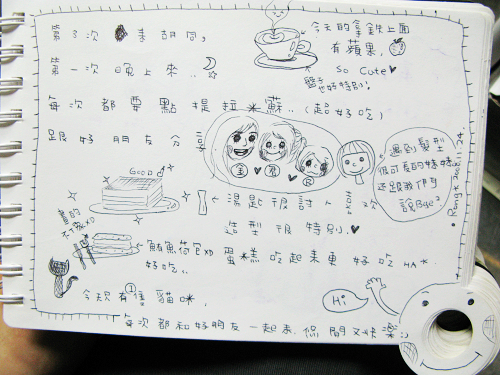 第3次 來胡同,
今天的拿鐵上面
有蘋果.
第一次 晚上來..
So Cute♥
每次 都要點 提拉米蘇..(超好吃)
跟好朋友分
遇到髮型
很可愛的妹妹
還跟我們
說Bye²
GOOD
湯匙很討人
造型很特別.♥
真的
XD
鮪魚荷包XD
好吃..
蛋糕吃起來更好吃 HA*
今天有1隻貓咪.
Hi
每次都和好朋友一起來.休閒又快樂:)